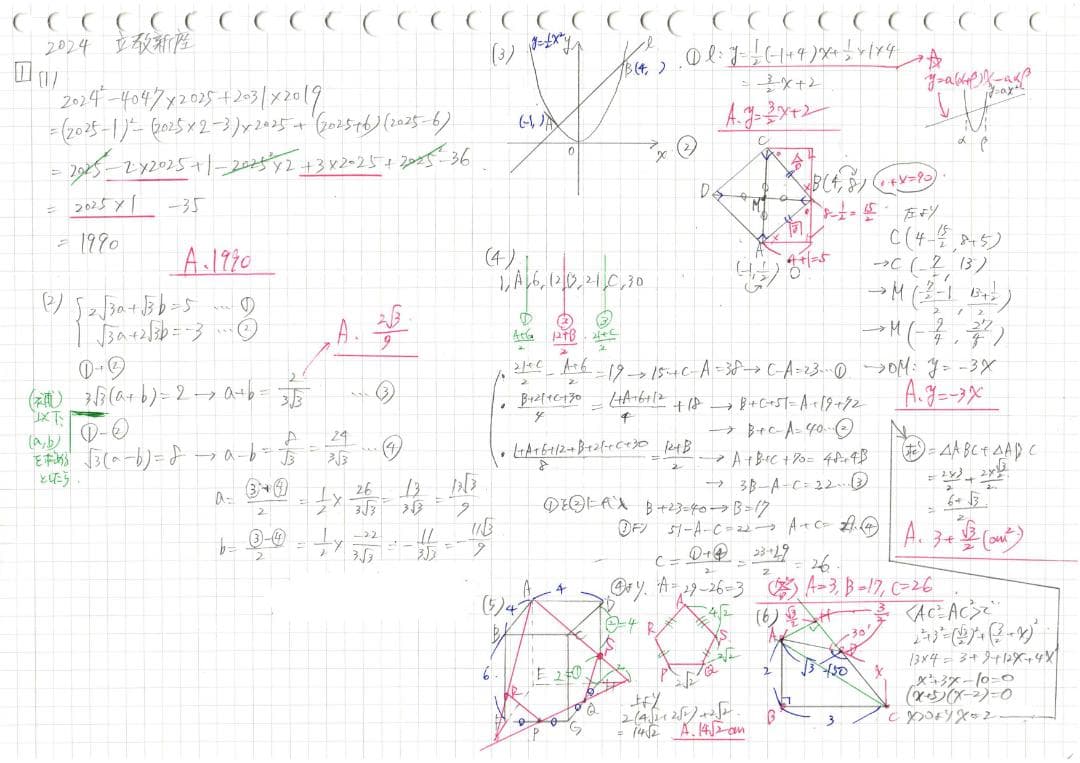 2024 立教新座
1 (1)
2024²-4047×2025+2031×2019
=(2025-1)²-(2025×2-3)×2025+(2025+6)(2025-6)
=2025²-2×2025+1-2025²×2+3×2025+2025²-36
=2025×1 -35
=1990
A.1990
(2) {2√3a+√3b=5 …①
√3a+2√3b=-3 …②
A. 2√3/9
①+②
3√3(a+b)=2→a+b=2/3√3 …③
(補)
以下、
(a,b)
を求める
としたら
①-②
√3(a-b)=8→a-b=8/√3=24/3√3…④
a=(③+④)/2=1/2×26/3√3=13/3√3=13√3/9
b=(③-④)/2=1/2×-22/3√3=-11/3√3=-11√3/9
(3)
y=1/2x² y l
B(4, )
(-1, )A
O x
①l: y=1/2(-1+4)x+1/2×1×4
=3/2x+2
A. y=3/2x+2
y=a(α+β)x-aαβ
y=ax²
α β
②
C
D
M
B(4,8)
合
同
A
(-1,1/2)
8-1/2=15/2
4+1=5
○+×=90
左より
C(4-15/2, 8+5)
→C(-7/2, 13)
→M((-7/2-1)/2, (13+1/2)/2)
→M(-9/4, 27/4)
→OM: y=-3x
A. y=-3x
(4)
1,A,6,12,B,21,C,30
① ② ③
(A+6)/2 (12+B)/2 (21+C)/2
・(21+C)/2-(A+6)/2=19→15+C-A=38→C-A=23…①
・(B+21+C+30)/4=(1+A+6+12)/4+18→B+C+51=A+19+72
→B+C-A=40…②
・(1+A+6+12+B+21+C+30)/8=(12+B)/2→A+B+C+70=48+4B
→3B-A-C=22…③
①を②に代入 B+23=40→B=17
③より 51-A-C=22→A+C=29…④
C=(①+④)/2=(23+29)/2=26
④より A=29-26=3 A=3, B=17, C=26
(5)
A 4 D
4
B C
6
E
R
S
F P G Q
②=4
2=①
A 4√2
R S
2√2
P Q
2√2
上より
2(4√2+2√2)+2√2
=14√2
A. 14√2cm
(6)
√3/2 H 3/2
A 30°
D
2 √3 150
x
B 3 C
<AC²=AC²>で
2²+3²=(√3/2)²+(3/2+x)²
13×4=3+9+12x+4x²
x²+3x-10=0
(x+5)(x-2)=0
x>0よりx=2
求=△ABC+△ADC
=2×3/2+(2×√3/2)/2
=(6+√3)/2
A. 3+√3/2(cm²)